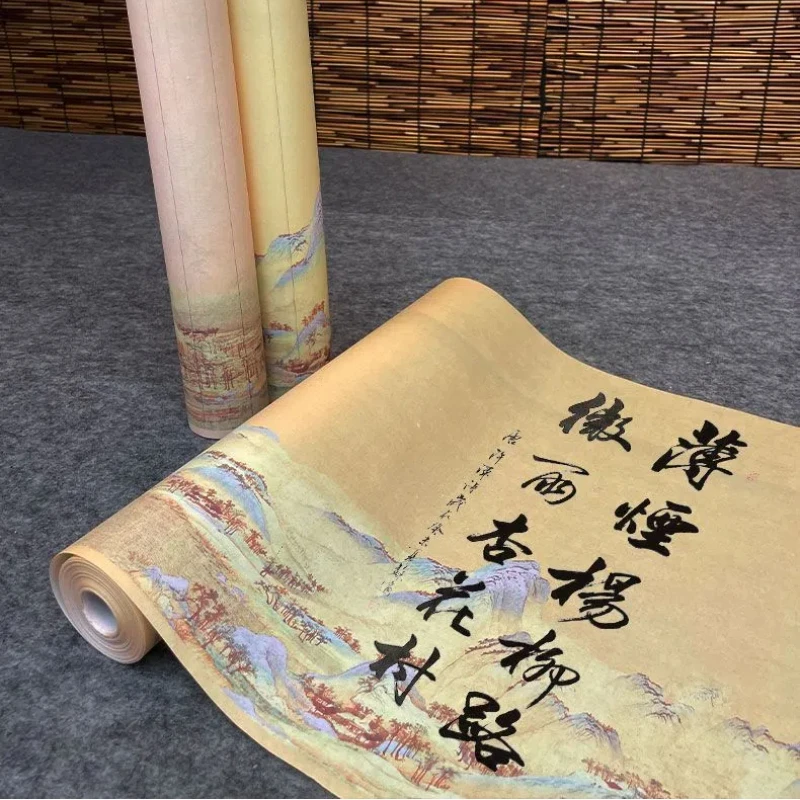 薄煙楊柳路
微雨杏花村